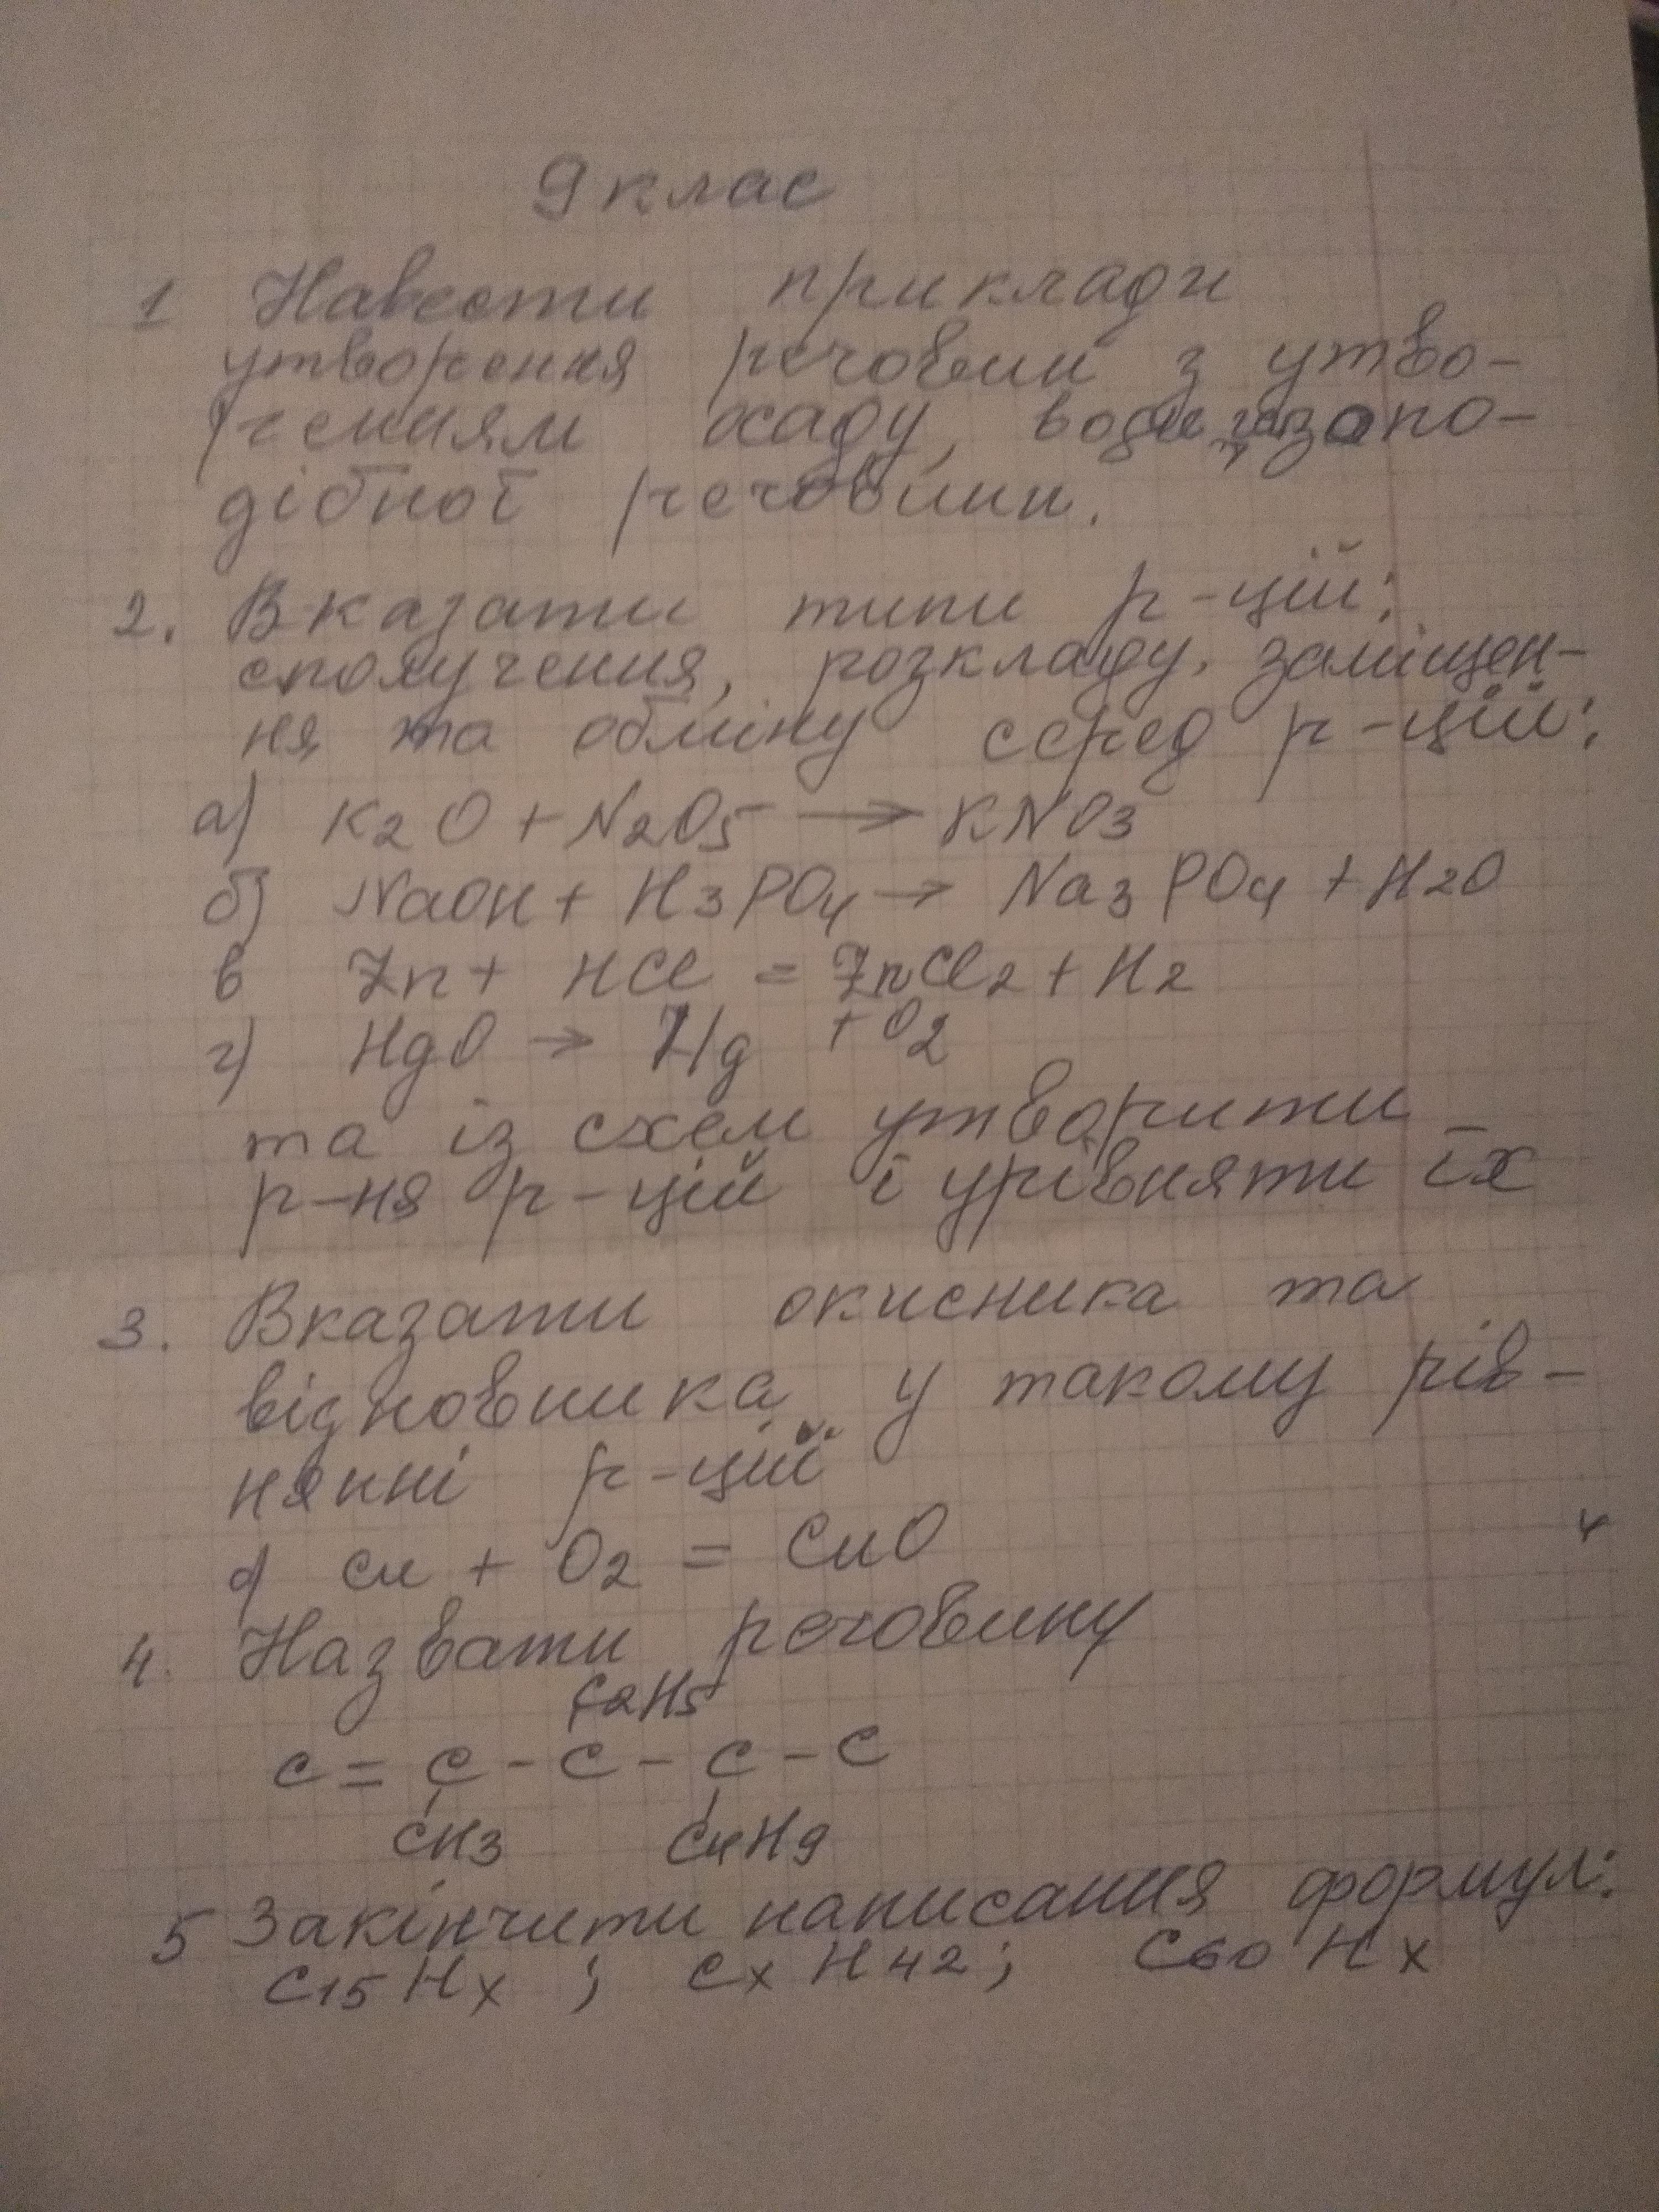 9 клас
1 Навести приклади
утворення речовин з утво-
ренням осаду, води, газопо-
дібної речовини.
2. Вказати типи р-цій:
сполучення, розкладу, заміщен-
ня та обміну серед р-цій:
а) K2O + N2O5 → KNO3
б) NaOH + H3PO4 → Na3PO4 + H2O
в Zn + HCl = ZnCl2 + H2
г) HgO → Hg + O2
та із схем утворити
р-ня р-цій і урівняти їх
3. Вказати окисника та
відновника у такому рів-
нянні р-цій
а) Cu + O2 = CuO
4. Назвати речовину
C2H5
C = C - C - C - C
CH3 C4H9
5 Закінчити написання формул:
C15Hx ; CxH42; C60Hx